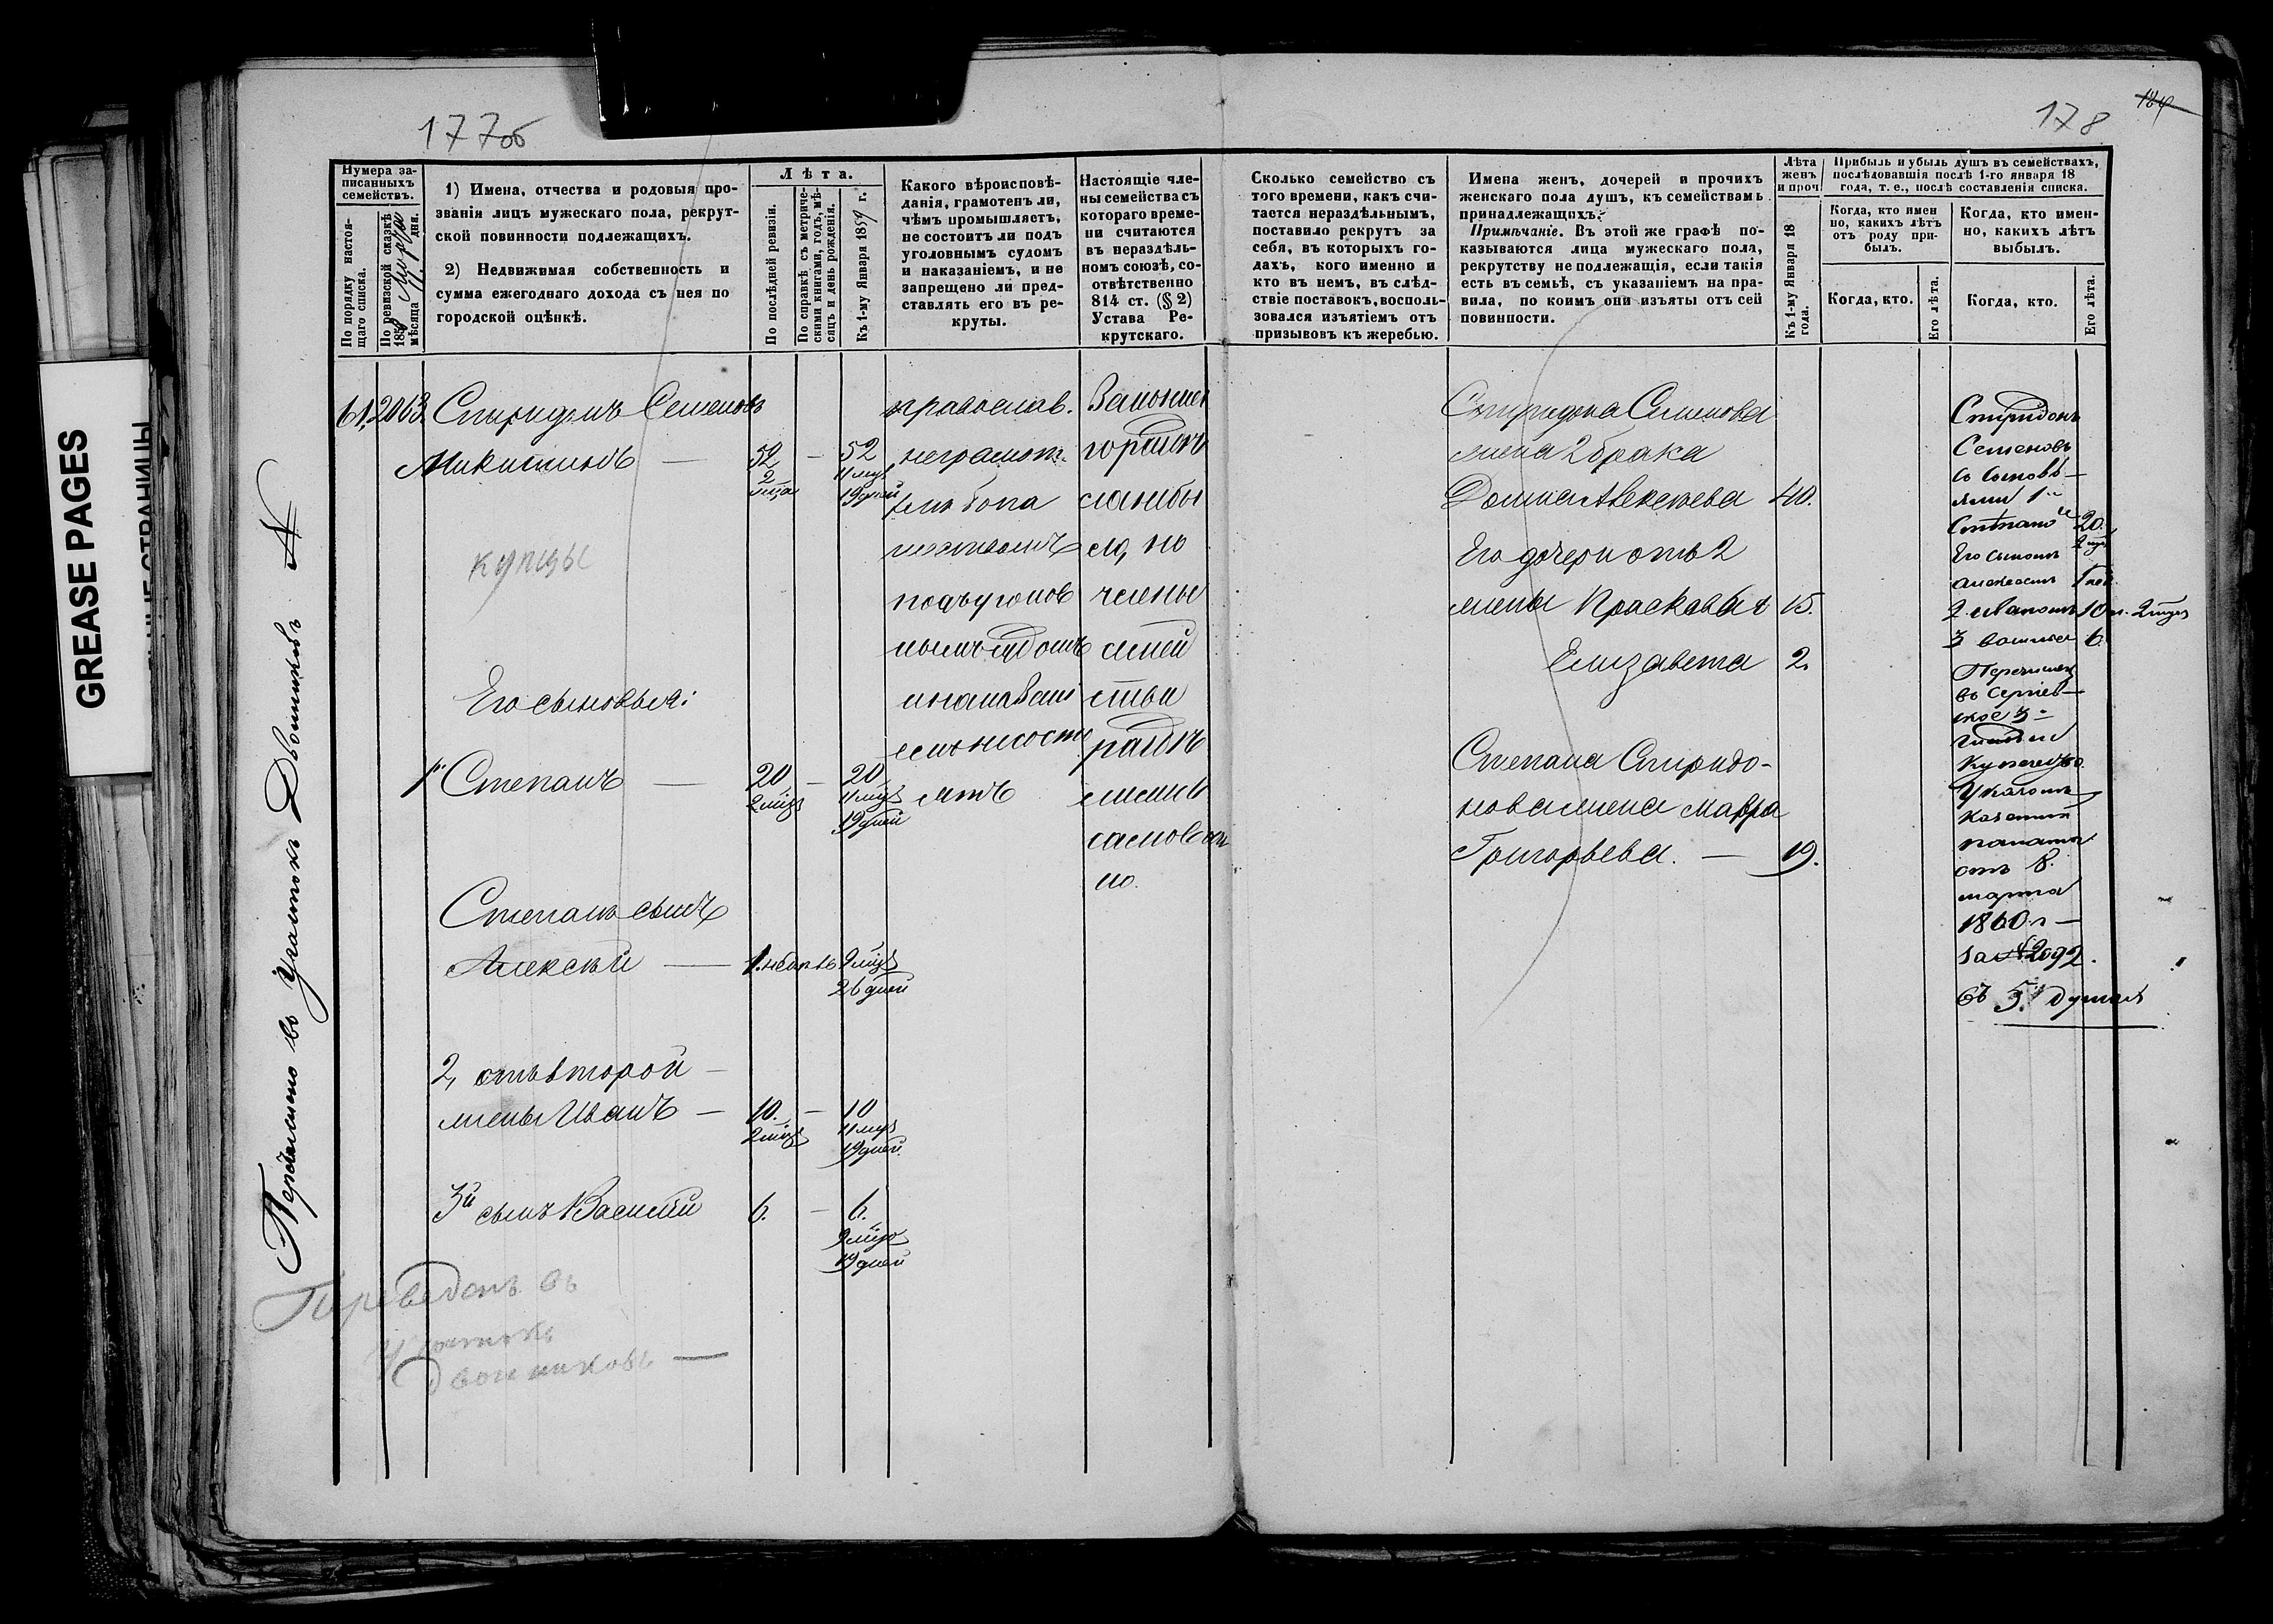 GREASE PAGES
177об
178
184
Перечислено въ Участокъ Двоиниковъ №
Нумера за-
писанныхъ
семействъ.
По порядку настоя-
щаго списка.
По ревизской сказкѣ
1858 Марта
мѣсяца 11 дня.
1) Имена, отчества и родовыя про-
званія лицъ мужескаго пола, рекрут-
ской повинности подлежащихъ.
2) Недвижимая собственность и
сумма ежегоднаго дохода съ нея по
городской оцѣнкѣ.
Лѣта.
По послѣдней ревизіи.
По справкѣ съ метриче-
скими книгами, годъ, мѣ-
сяцъ и день рожденія.
Къ 1-му Января 1859 г.
Какого вѣроисповѣ-
данія, грамотенъ ли,
чѣмъ промышляетъ,
не состоитъ ли подъ
уголовнымъ судомъ
и наказаніемъ, и не
запрещено ли пред-
ставлять его въ ре-
круты.
Настоящіе чле-
ны семейства съ
котораго време-
ни считаются
въ нераздѣль-
номъ союзѣ, со-
отвѣтственно
814 ст. (§ 2)
Устава Ре-
крутскаго.
Сколько семейство съ
того времени, какъ счи-
тается нераздѣльнымъ,
поставило рекрутъ за
себя, въ которыхъ го-
дахъ, кого именно и
кто въ немъ, въ слѣд-
ствіе поставокъ, восполь-
зовался изъятіемъ отъ
призывовъ къ жеребью.
Имена женъ, дочерей и прочихъ
женскаго пола душъ, къ семействамъ
принадлежащихъ.
Примѣчаніе. Въ этой же графѣ по-
казываются лица мужескаго пола,
рекрутству не подлежащія, если такія
есть въ семьѣ, съ указаніемъ на пра-
вила, по коимъ они изъяты отъ сей
повинности.
Лѣта
женъ
и проч
Къ 1-му Января 18
года.
Прибыль и убыль душъ въ семействахъ,
послѣдовавшія послѣ 1-го января 18
года, т. е., послѣ составленія списка.
Когда, кто имен
но, какихъ лѣтъ
отъ роду при-
былъ.
Когда, кто имен-
но, какихъ лѣтъ
выбылъ.
Когда, кто.
Его лѣта.
Когда, кто.
Его лѣта.
61, 2063. Спиридонъ Семеновъ
Микитинъ — 52 2 мца — 52 11 мцъ 19 дней
купцы
Его сыновья:
1й Степанъ — 20 2 мцъ — 20 11 мцъ 19 дней
Степана сынъ
Алексѣй — 1. небылъ 9 мцъ 26 дней
2, отъ второй
жены Иванъ — 10. 2 мцъ — 10 11 мцъ 19 дней.
3й сынъ Василій 6. — 6. 9 мцъ 19 дней
Переведенъ въ
Участокъ
Двоиниковъ —
православ.
неграмот.
хлѣбопа
шествомъ
подъ уголов
нымъ судомъ
и наказані
емъ не состо
итъ
сло, но
члены
семей
ства
раздѣ
Спиридона Семенова
жена 2 брака
Домна Алексѣева 40.
Его дочери отъ 2
жены Прасковья 15.
Елизавета 2.
Степана Спиридо-
нова жена Мавра
Григорьева. — 19.
Спиридонъ
Семеновъ
съ сыновь-
ями 1й
Степано 20. 2 мцъ
Его сыномъ
Алексѣемъ 1 лѣт
2 Иваномъ 10 л. 2 мцъ
3 Василь 6.
Перечислен
въ Сергiев-
ское 3-
гильдіи
Купечество.
Указомъ
Казенной
палаты
отъ 8.
марта
1860 г —
за №2092.
въ 5. душах